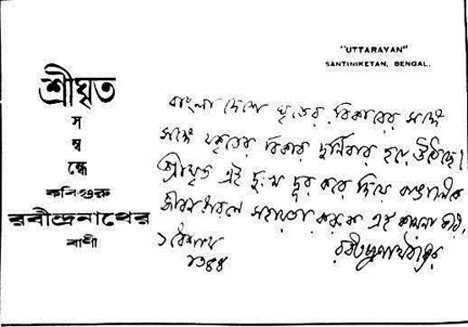 "UTTARAYAN"
SANTINIKETAN, BENGAL.
শ্রীঘৃত
স
ম্ব
ন্ধে
কবিগুরু
রবীন্দ্রনাথের
বাণী
বাংলা দেশে ঘৃতের বিকারের সঙ্গে
সঙ্গে যকৃতের বিকার দুর্নিবার হয়ে উঠেছে।
শ্রীঘৃত এই দুঃখ দূর করে দিয়ে বাঙালীকে
জীবনধারণে সহায়তা করুক এই কামনা করি,
১ বৈশাখ
১৩৪৪
রবীন্দ্রনাথ ঠাকুর